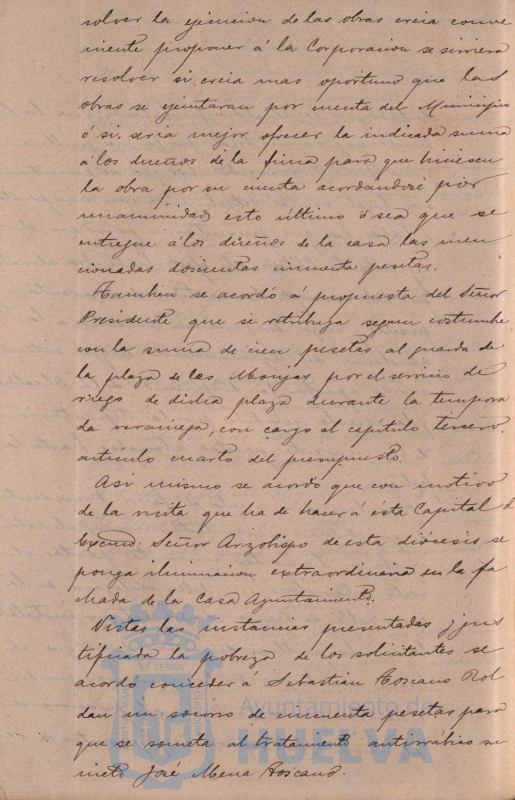 solver la ejecucion de las obras creia conve
niente proponer á la Corporacion se sirviera
resolver si creia mas oportuno que las
obras se ejecutaran por cuenta del Municipio
ó si seria mejor ofrecer la indicada suma
á los dueños de la finca para que hiciesen
la obra por su cuenta acordandose por
unanimidad esto último ó sea que se
entregue á los dueños de la casa las men
cionadas doscientas cincuenta pesetas.
Tambien se acordó á propuesta del Señor
Presidente que se retribuya segun costumbre
con la suma de cien pesetas al guarda de
la plaza de las Monjas por el servicio de
riego de dicha plaza durante la tempora
da veraniega, con cargo al capitulo tercero,
artículo cuarto del presupuesto.
Asi mismo se acordó que con motivo
de la visita que ha de hacer á ésta Capital el
Excmo. Señor Arzobispo de esta diócesis se
ponga iluminacion extraordinaria en la fa
chada de la Casa Ayuntamiento.
Vistas las instancias presentadas y jus
tificada la pobreza de los solicitantes se
acordo conceder á Sebastian Toscano Rol
dan un socorro de cincuenta pesetas para
que se someta al tratamiento antirrábico su
nieto José Mena Toscano.
ET TERRA
Ayuntamiento de
HUELVA